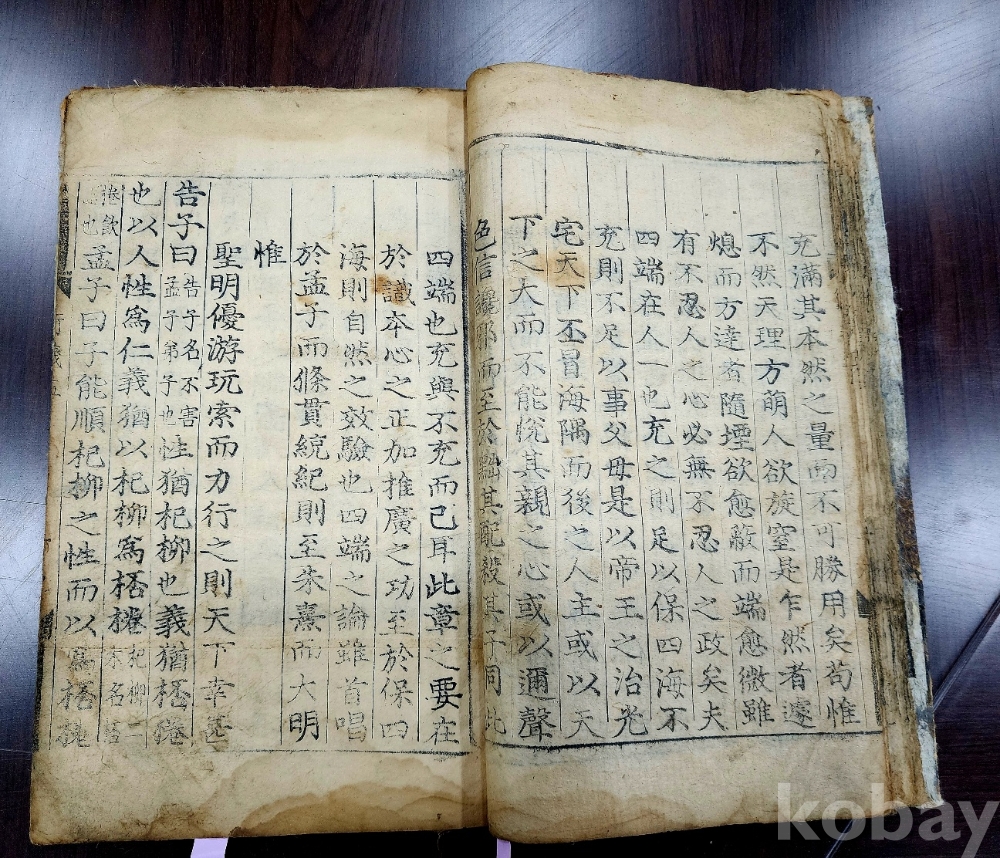 充滿其本然之量而不可勝用矣苟惟
不然天理方萌人欲旋窒是乍然者遽
熄而方達者隨堙欲愈蔽而端愈微雖
有不忍人之心必無不忍人之政矣夫
四端在人一也充之則足以保四海不
充則不足以事父母是以帝王之治光
宅天下丕冒海隅而後之人主或以天
下之大而不能悅其親之心或以邇聲
色信讒邪而至於黜其配殺其子同此
四端也充與不充而已耳此章之要在
於識本心之正加推廣之功至於保四
海則自然之效驗也四端之論雖首唱
於孟子而條貫統紀則至朱熹而大明
惟
聖明優游玩索而力行之則天下幸甚
告子曰告子名不害孟子弟子也性猶杞柳也義猶桮棬
也以人性爲仁義猶以杞柳爲桮棬杞柳二木名桮
棬飲也孟子曰子能順杞柳之性而以爲桮棬
kobay